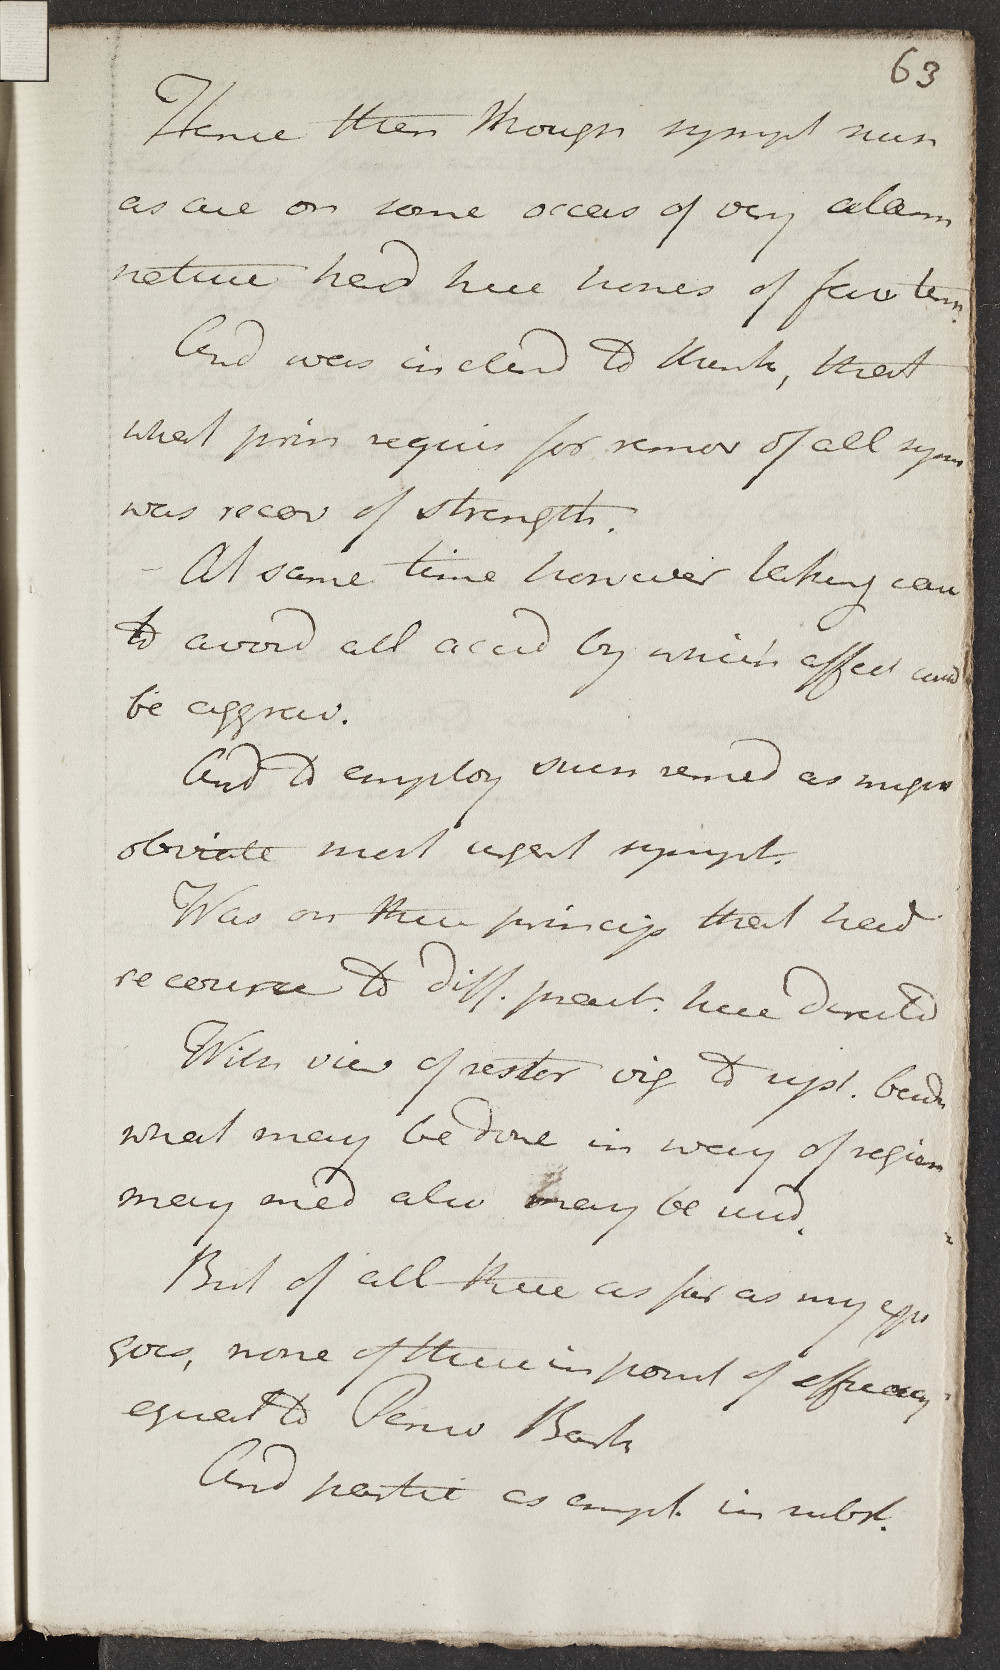 63
Hence then though sympt such
as are on some occas of very alarm
nature had here hopes of fav term.
And was inclind to think, that
what prin requis for remov of all sym
was recov of strength.
- At same time however taking care
to avoid all accid by which affect could
be aggrav.
And to employ such remed as might
obviate most urgent sympt.
Was on these princip that had
recourse to diff. pract. here directd
With view of restor vig to syst. besid
what may be done in way of regim
many med also may be usd.
But of all these as far as my exp
goes, none of them in point of efficacy
equal to Peruv Bark
And partic as empl. in subst.